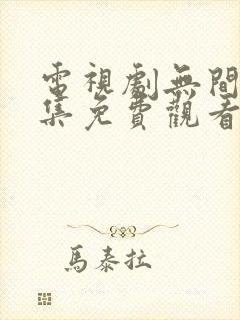 電視劇無間
集免費觀看
馬泰拉